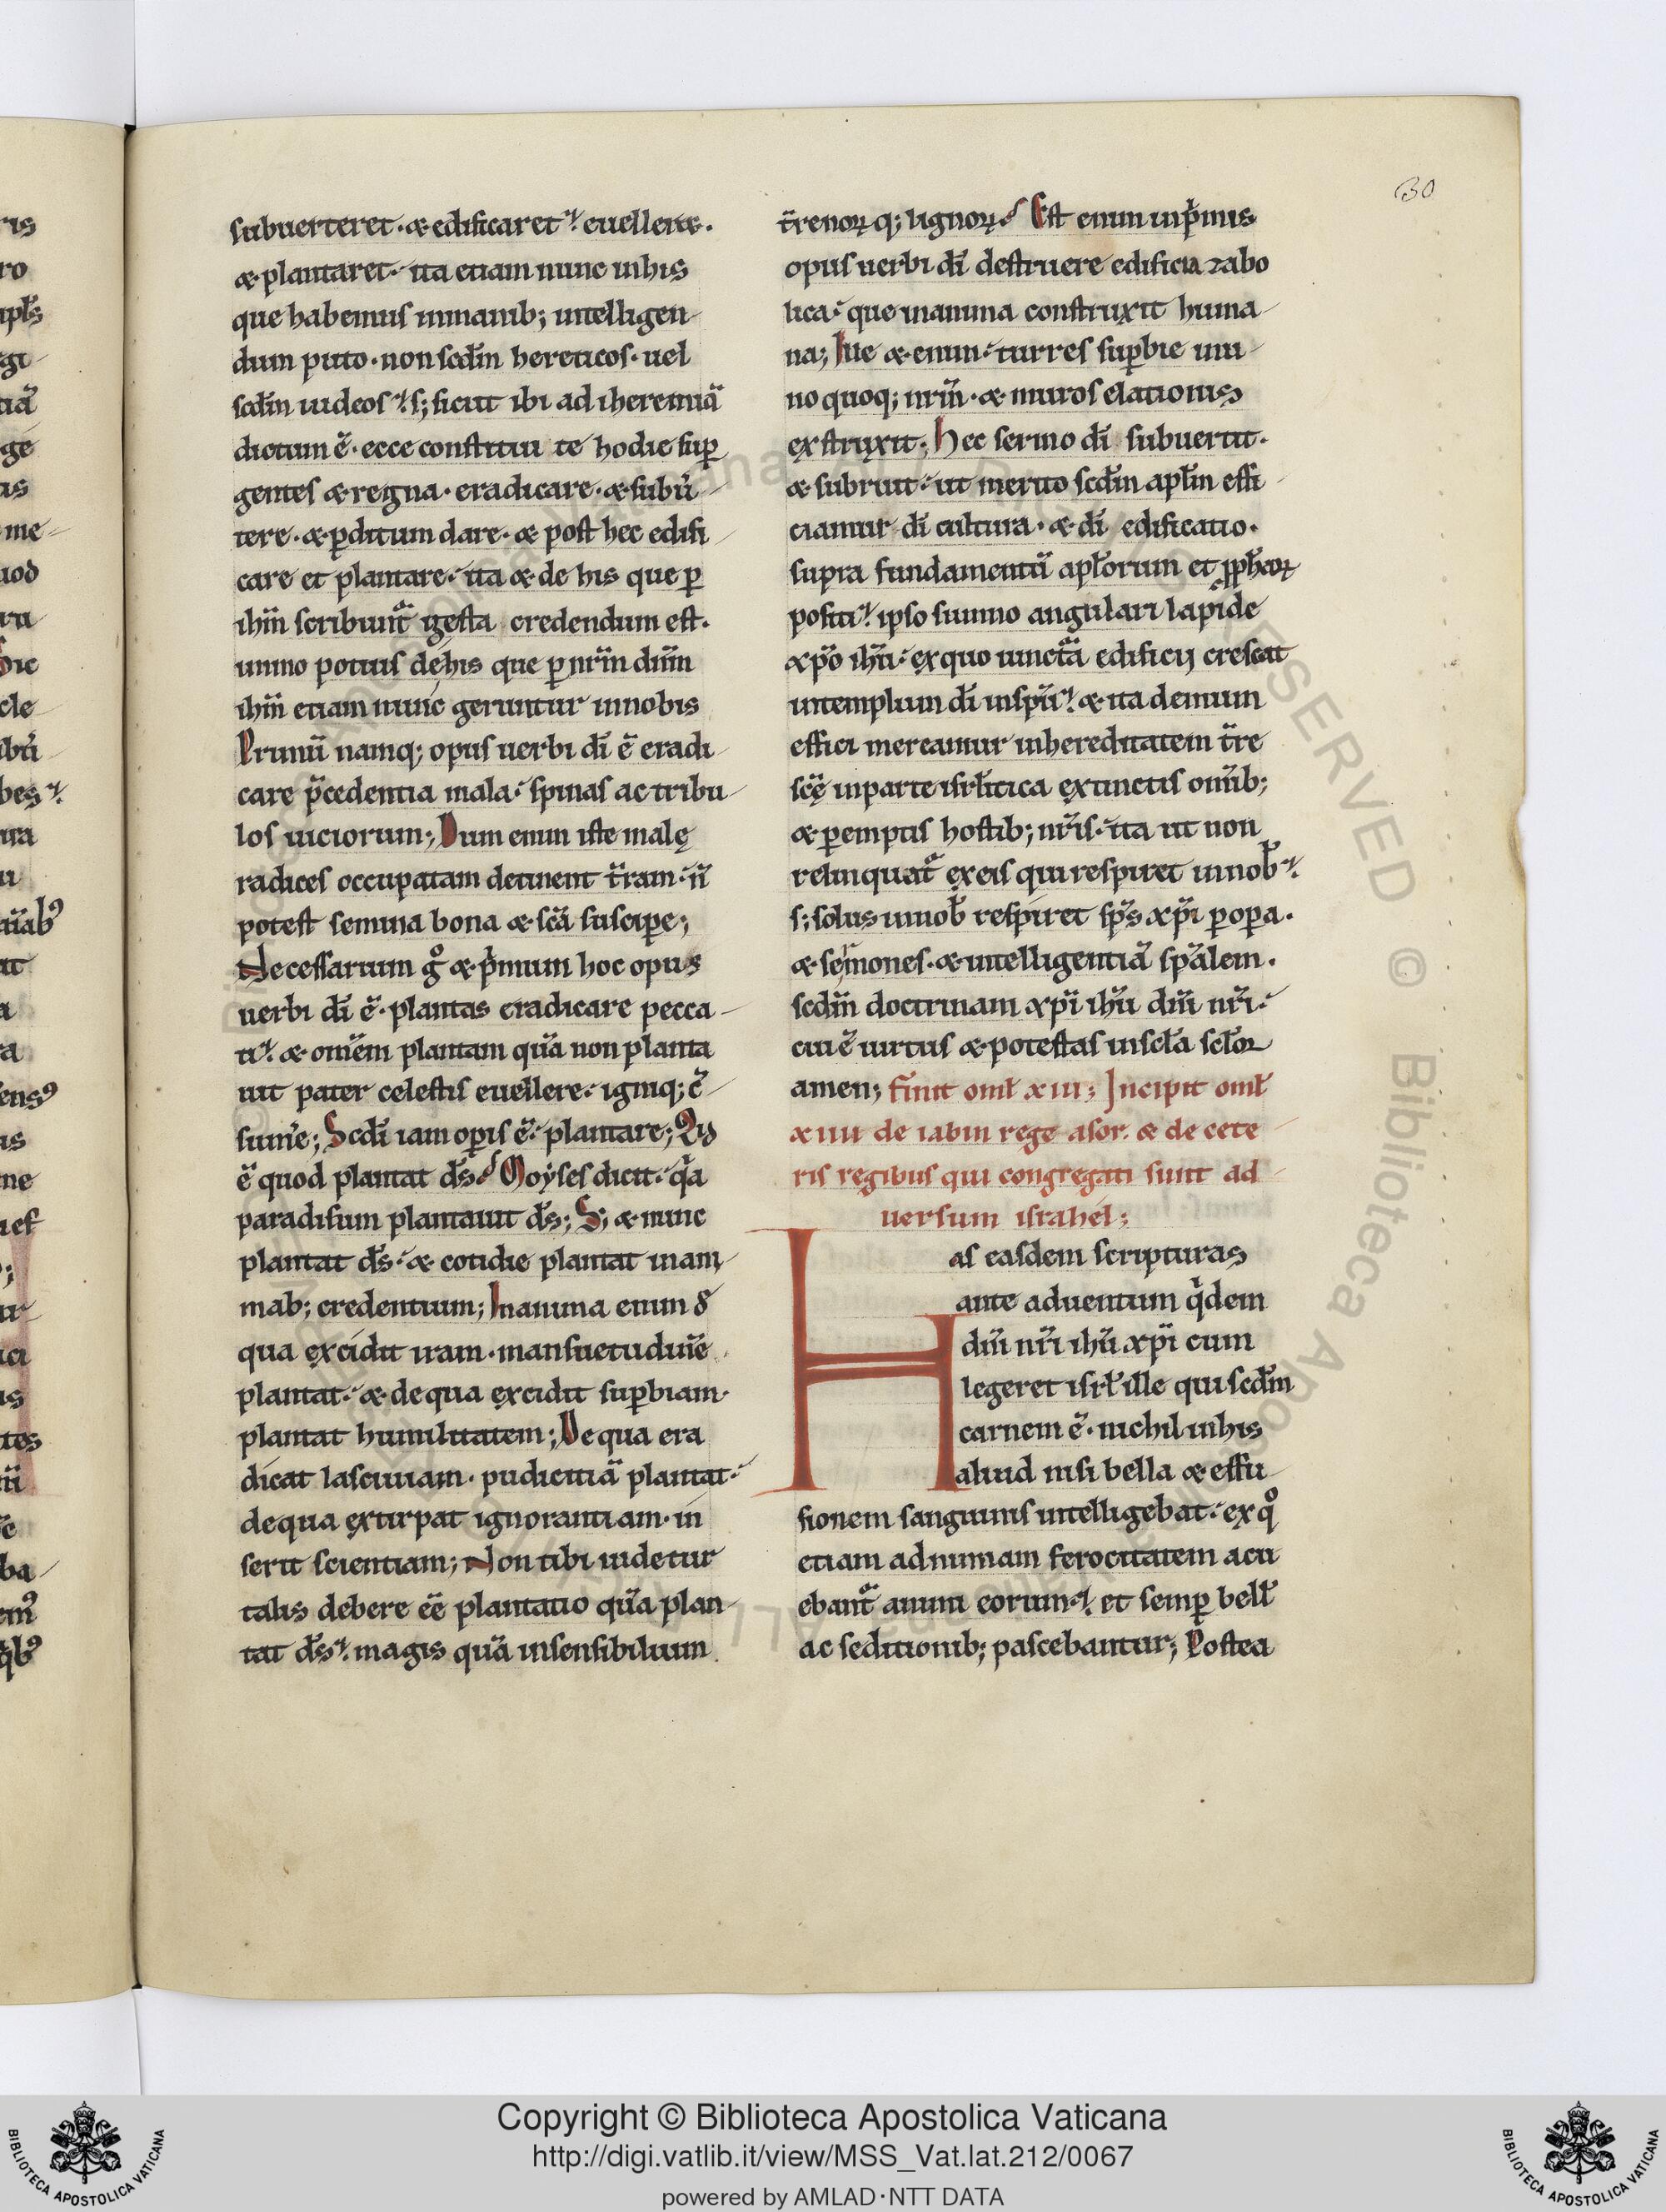 subuerteret · & edificaret euellere ·
& plantaret · ita etiam nunc in his
que habemus in manib; intelligen-
dum puto · non scdm hereticos · uel
scdm iudeos s; sicut ibi ad iheremiā
dictum ē · ecce constitui te hodie suꝑ
gentes & regna · eradicare · & subũ-
tere · & ꝑditum dare · & post hec edifi-
care et plantare · ita & de his que ꝑ
ihm̄ scribunt̃ gesta credendum est ·
immo potius de his que ꝑ nrm̄ dnm̄
ihm̄ etiam nunc geruntur in nobis
Primū namq; opus uerbi dī ē eradi-
care p̄cedentia mala · spinas ac tribu-
los uiciorum; Dum enim iste malę
radices occupatam detinent tr̄am · n̄
potest semina bona & scā susciꝑe;
Necessarium gͦ & pͥmum hoc opus
uerbi dī ē · plantas eradicare pecca-
ti & om̄em plantam quā non planta
uit pater celestis euellere · igniq; c̄-
sum̄e; Scdī iam oꝑis ē · plantare; Qid
ē quod plantat ds̄ Moyses dicit · qͣa
paradisum plantauit ds̄; S; & nunc
plantat ds̄ · & cotidie plantat in ani-
mab; credentium; In anima enim de
qua excidit iram · mansuetudin̄e
plantat · & de qua excidit suꝑbiam ·
plantat humilitatem; De qua era
dicat lasciuiam · pudicitiā plantat ·
de qua extirpat ignorantiam · in
serit scientiam; Non tibi uidetur
talis debere ēē plantatio quā plan-
tat ds̄ magis quā insensibilium
tr̄enoꝝ q; lignoꝝ Est enim inpͥmis
opus uerbi dī destruere edificia zabo
lica · que in anima construxit huma-
na; Ille & enim · turres suꝑbie uni-
no quoq; nrm̄ · & muros elationis
exstruxit; Hec sermo dī subuertit ·
& subruit · ut merito scdm apl̄m effi-
ciamur dī cultura · & dī edificatio ·
supra fundamentū apl̄orum et ꝓphetaꝝ
positi ipso summo angulari lapide
xp̄o ihū · ex quo iunctᷓa edificij crescat
in templum dī in sp̄u & ita demum
effici mereamur in hereditatem tr̄e
scę̄ in parte isrl̄itica extinctis om̄ib;
& ꝑemptis hostib; nr̄is · ita ut non
relinquat̃ ex eis qui respiret in nob̄
s; solus in nob̄ respiret sp̄s xp̄i ꝑ opa ·
& sermones · & intelligentiā sp̄alem ·
scdm doctrinam xp̄i ihū dn̄i nr̄i ·
cui ē uirtus & potestas in scl̄a scl̄oꝝ
amen; finit oml̄ xiii; Incipit oml̄
xiiii de iabin rege asor · & de cete-
ris regibus qui congregati sunt ad-
uersum israhel;
Has easdem scripturas
ante aduentum qͥdem
dn̄i nr̄i ihū xp̄i cum
legeret isrl̄ ille qui scdm
carnem ē · nichil in his
aliud nisi bella & effu-
sionem sanguinis intelligebat · ex qͦ
etiam ad nimiam ferocitatem acu
ebant̃ animi eorum et semꝑ bell̄
ac seditionib; pascebantur; Postea
30
Copyright © Biblioteca Apostolica Vaticana
http://digi.vatlib.it/view/MSS_Vat.lat.212/0067
powered by AMLAD·NTT DATA
BIBLIOTECA APOSTOLICA VATICANA
BIBLIOTECA APOSTOLICA VATICANA